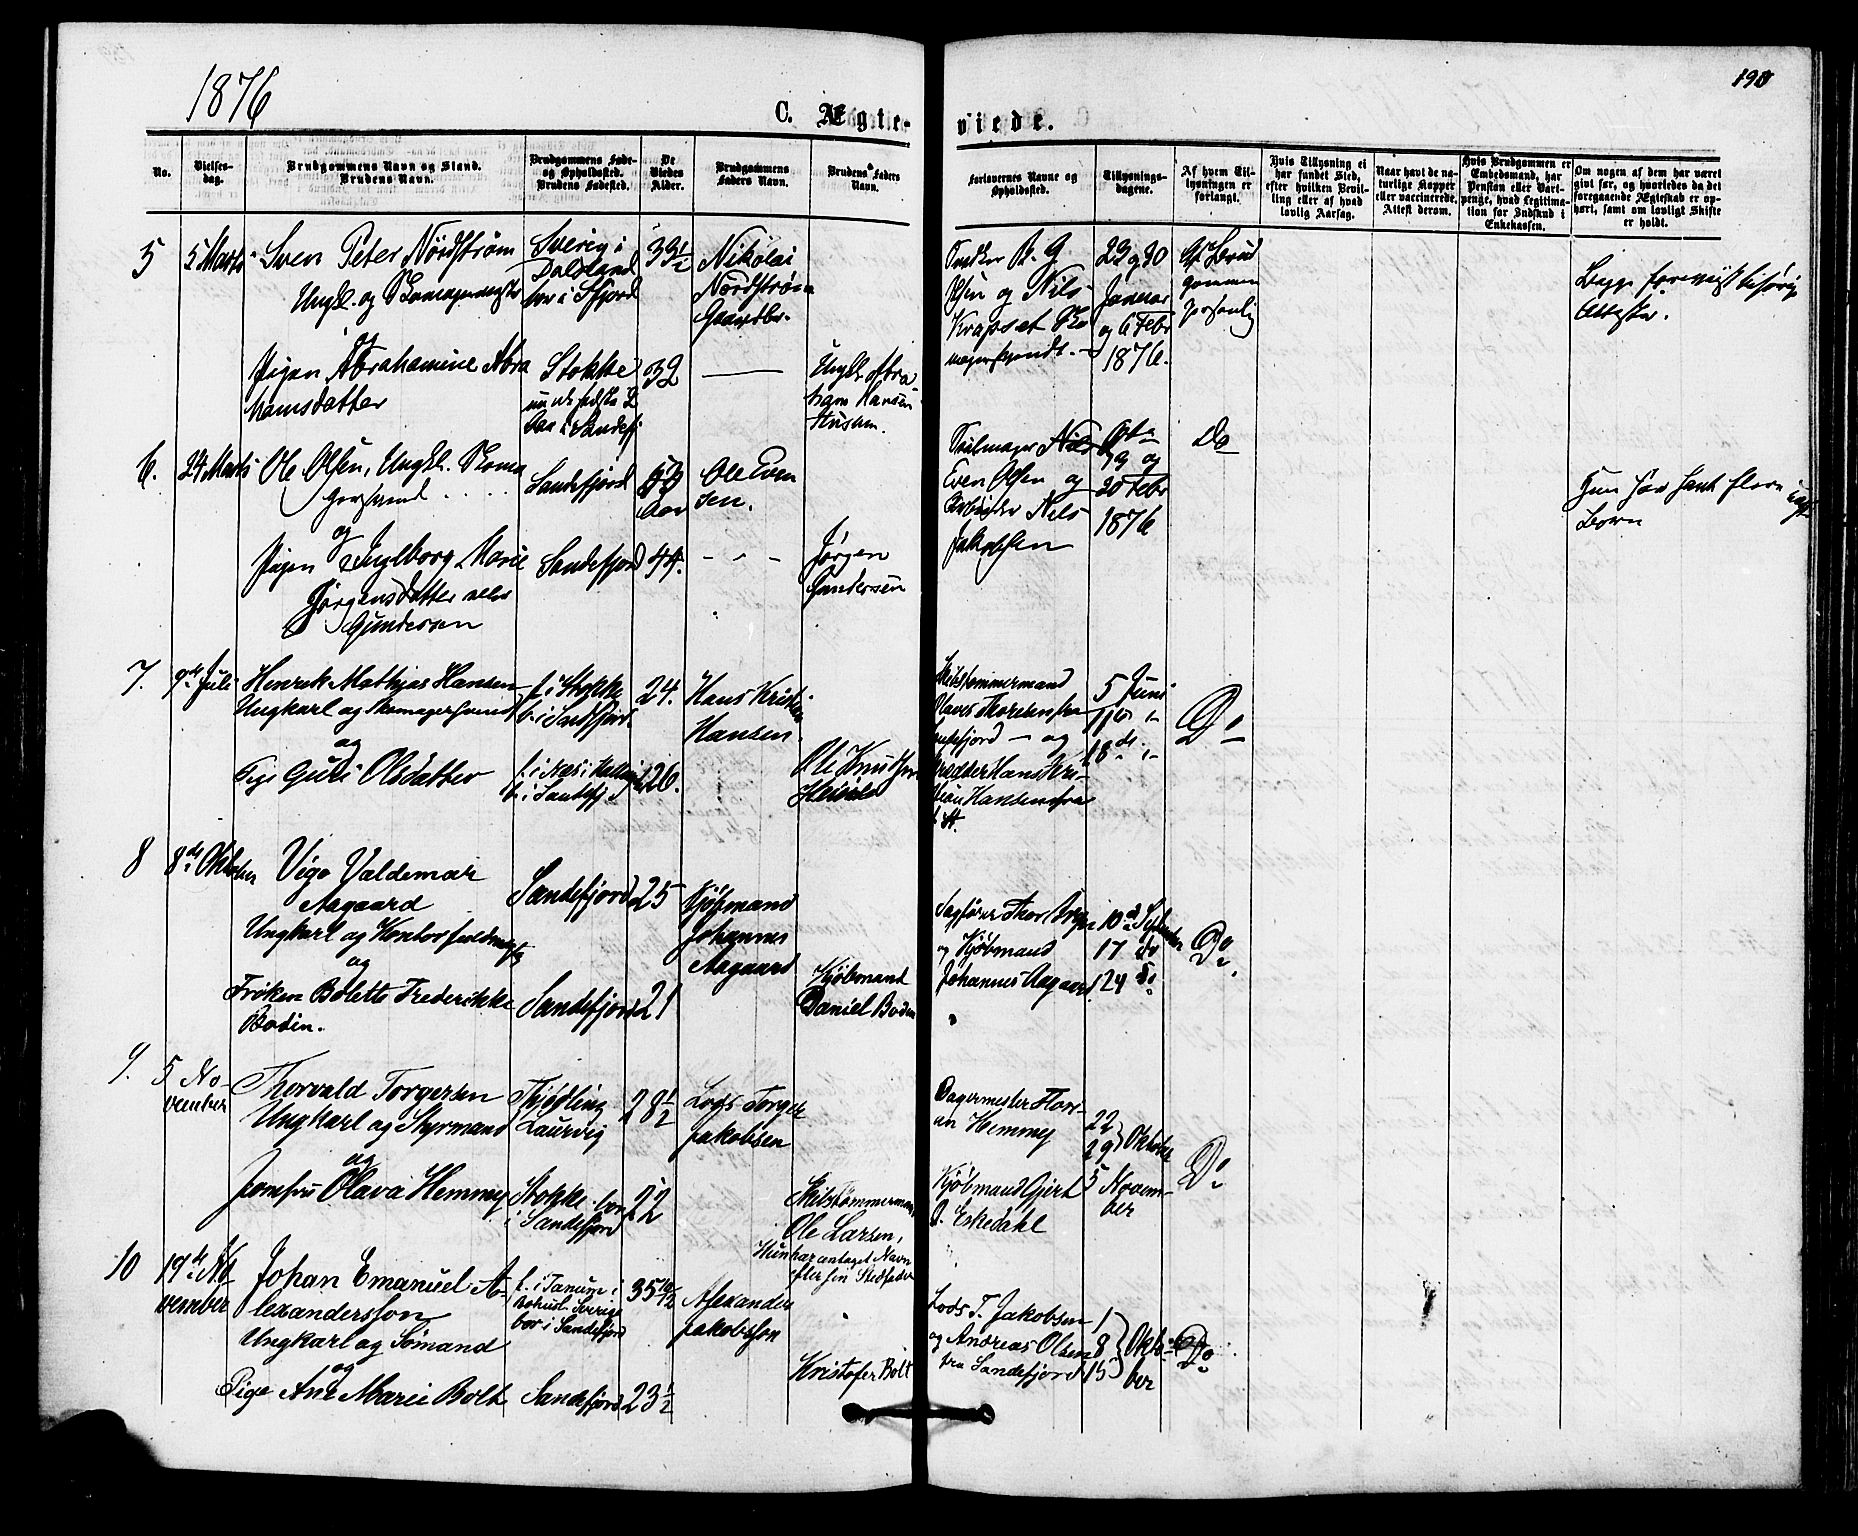 1876
190
C. Ægte-
viede.
No.
Vielses-
dag.
Brudgommens Navn og Stand.
Brudens Navn.
Brudgommens Føde-
og Opholdsted.
Brudens Fødested.
De
Viedes
Alder.
Brudgommens
Faders Navn.
Brudens Faders
Navn.
Forlovernes Navne og
Opholdsted.
Tillysnings-
dagene.
Af hvem Til-
lysningen er
forlangt.
Hvis Tillysning ei
har fundet Sted,
efter hvilken Bevil-
ling eller af hvad
lovlig Aarsag.
Naar havt de na-
turlige Kopper
eller vaccinerede.
Attest derom.
Hvis Brudgommen er
Embedsmand, har
Penston eller Vart-
penge, hvad Legitima-
tion for Indskud i
Enkekassen.
Om nogen af dem har været
givt før, og hvorledes da det
foregaaende Ægteskab er op-
hørt, samt om lovligt Skifte
er holdt.
5
5 Marts
Sven Peter Nordstrøm
Ungk. og
Sverig i
Dalsland
bor i Sfjord
33½
Nikolai
Nordstrøm
Gaardbr.
B. G.
Olsen og Nils
23 og 30
Januar
og 6 Febr
1876.
Brud
gommen
personlig
Begge
Attester.
og
Pigen Abrahamine Abra
hamsdatter
Stokke
i Sandefj
32
Ungk. Abra
ham Hansen
Husum.
6.
24 Marts
Ole Olsen, Ungk. Skoma
gersvend
Sandefjord
53
Aar
Ole Even
sen.
Even Olsen og
Arbeider Nils
Jakobsen
13 og
20 Febr
1876
Do
Hun har havt flere
Børn
og
Pigen Ingeborg Marie
Jørgensdatter
Gundersen
Sandefjord
44.
Jørgen
Gundersen
7.
9de Juli
Henrik Mathias Hansen
Ungkarl og Skomagersvend
f. i Stokke
b. i Sandfjord
24.
Hans Kristian
Hansen.
Skibstømmermand
Olaves Thoresen fra
Sandefjord – og
Hans Kri-
stian Hansen fra
St.
5 Juni
11te
18de
Do
og
Pige Guri Olsdatter
f. i Næs i Halling
b. i Sandefj
26.
Ole Knudsen
8
8de Oktober
Vigo Valdemar
Aagaard
Ungkarl og Kontorfuldmægtig
Sandefjord
25
Kjøbmand
Johannes
Aagaard
Sagfører Thor
og Kjøbmand
Johannes Aagaard
10de September
17 Do
24 Do
Do
og
Frøken Bolette Frederikke
Bodin.
Sandefjord
21
Kjøbmand
Daniel Bodin
9.
5 No-
vember
Thorvald Torgersen
Ungkarl og Styrmand
Tjødling
Laurvig
28½
Lods Torger
Jakobsen
Bagermester Hav-
an Hemmy
Kjøbmand Gjert
O. Eskedahl
22
29 Oktober
5 Novem-
ber
Do
og
Jomfru Olava Hemmy
Stokke bor
i Sandefjord
22
Skibstømmermand
Ole Larsen,
Hun har antaget Navn
efter sin Stedfader
10
19de No
vember
Johan Emanuel A-
lexandersson
Ungkarl og Sømand
f. i Tanum i
Bohusl. Sverige
bor i Sandefjord
35 10/12
Alexander
Jakobsson
Lods T. Jakobsen
og Andreas Olsen
fra Sandefjord
1
8
15
Okto-
ber
Do
og
Pige Ane Marie Bolt
Sandefjord
23½
Kristofer Bolt